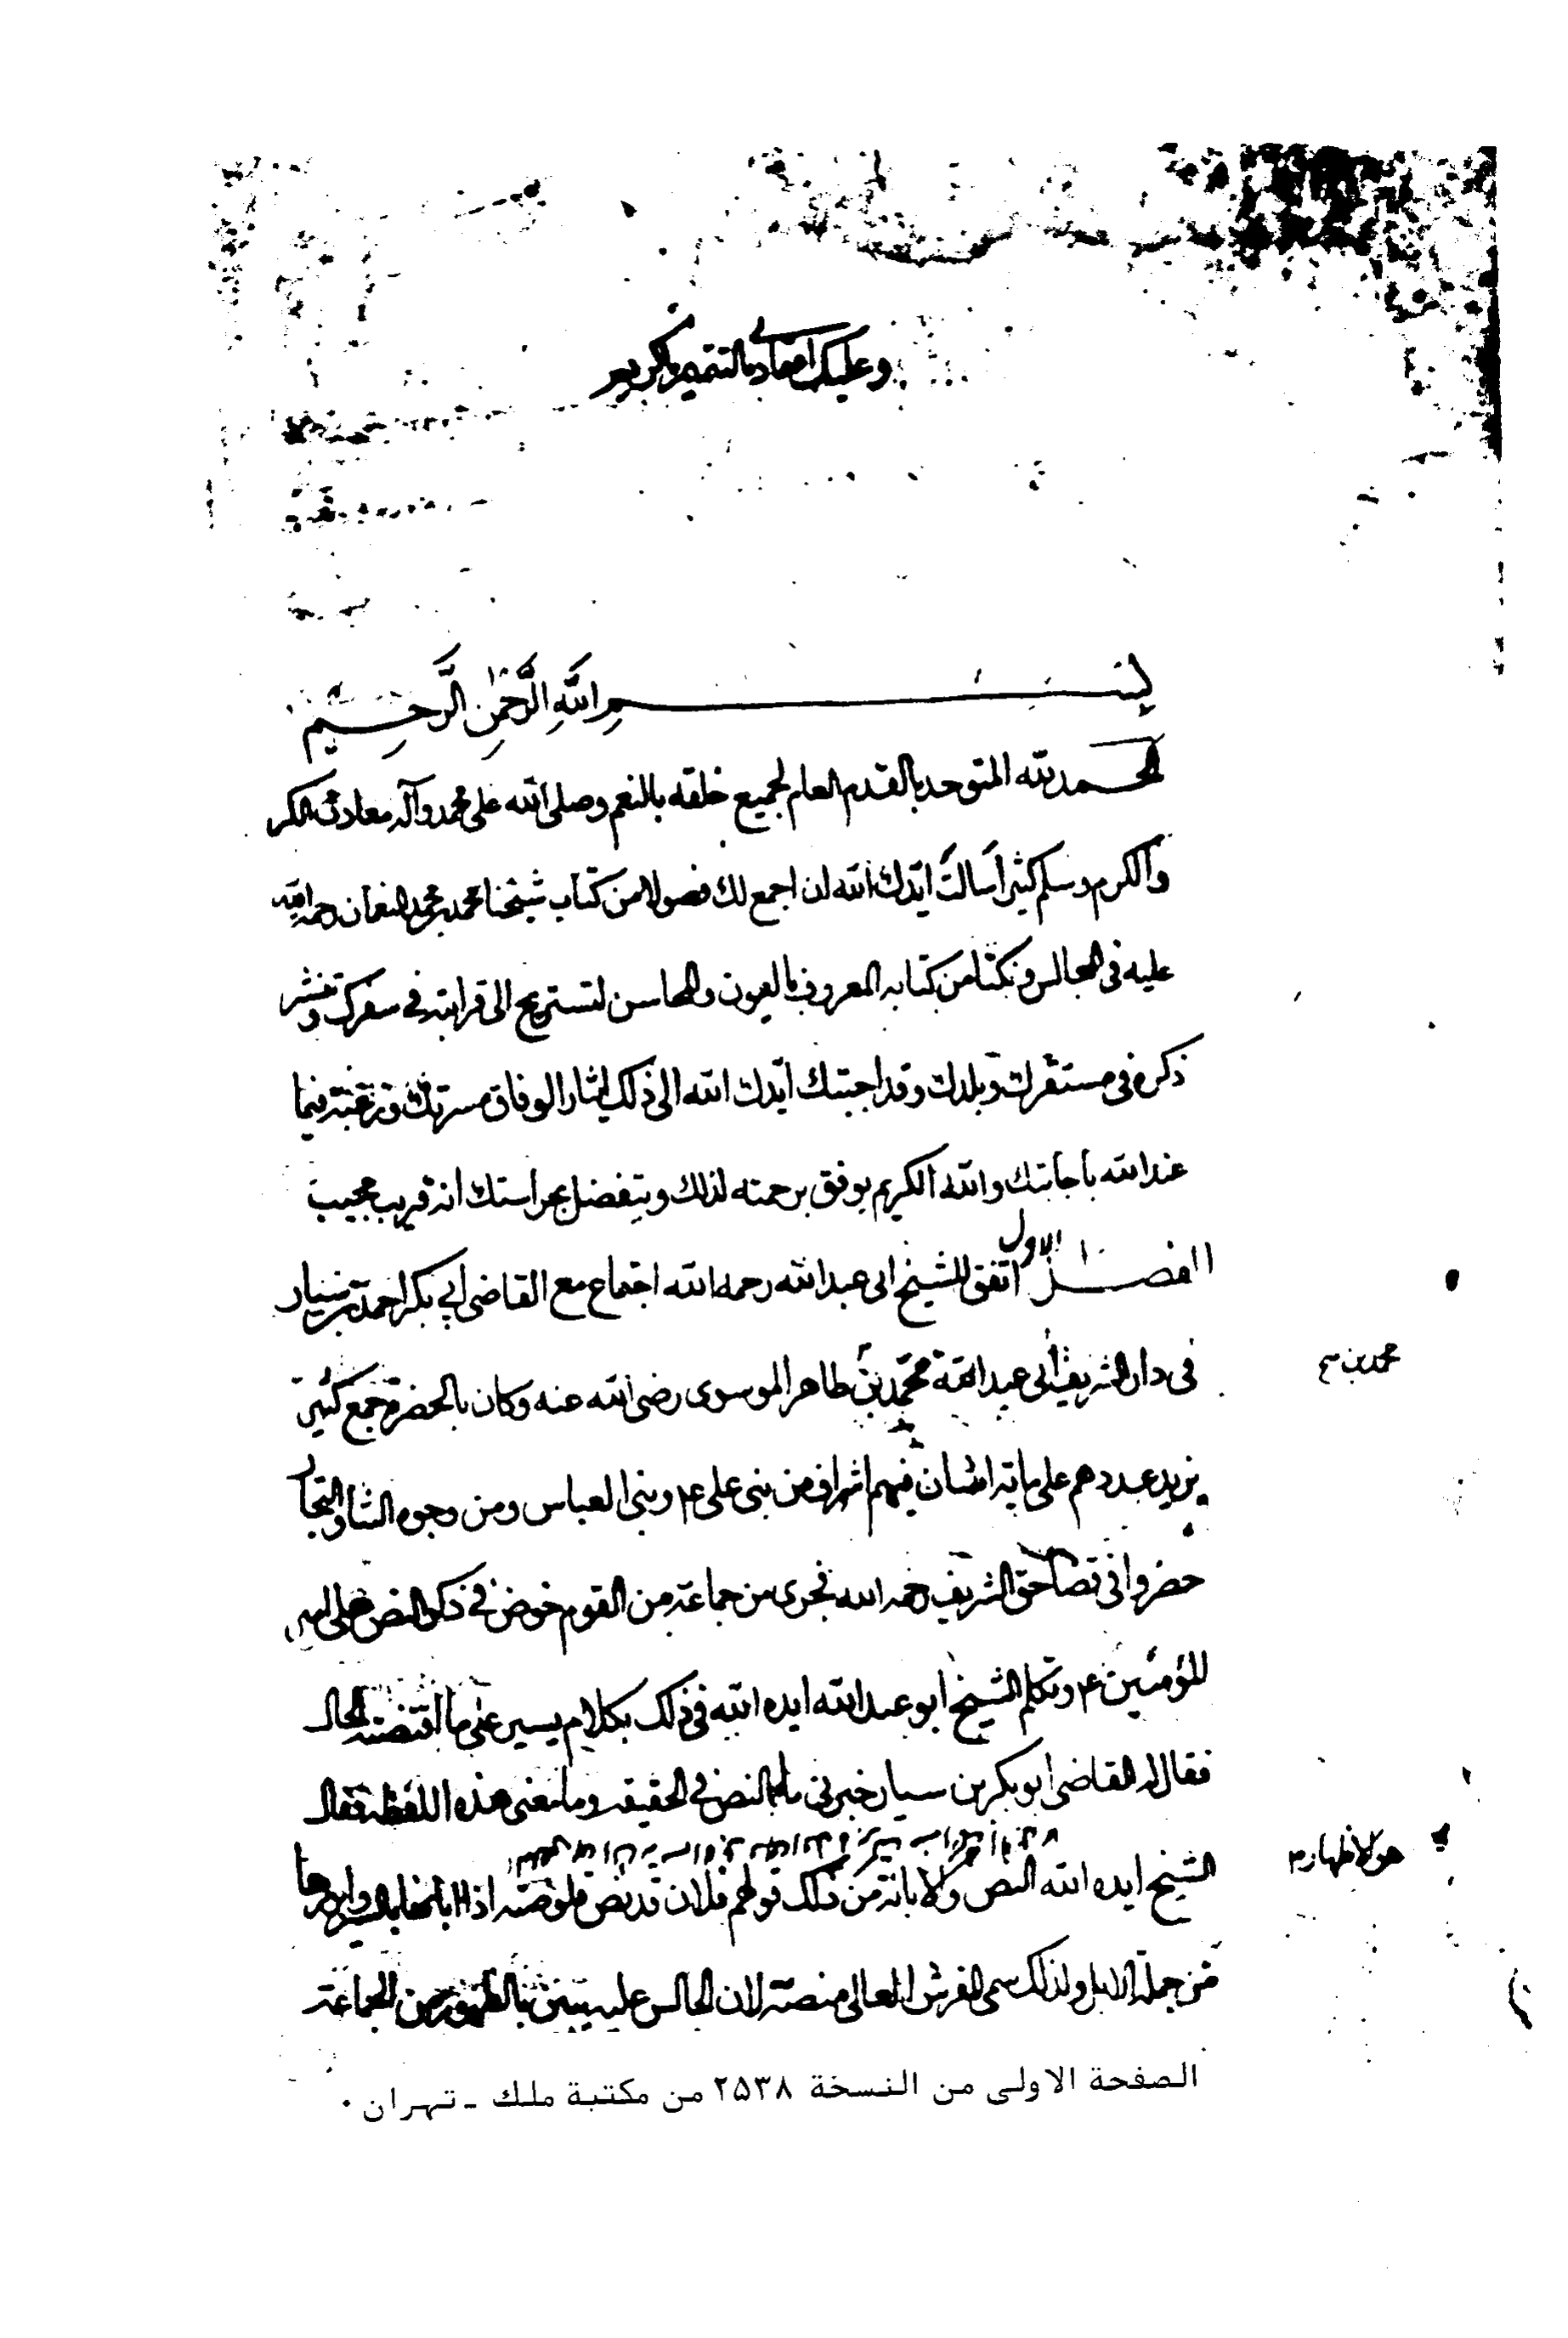 وعليك اعتمادي بالتتميم يا كريم
بسم الله الرحمن الرحيم
الحمد لله المتوحد بالقدم العام لجميع خلقه بالنعم وصلى الله على محمد وآله معادن الحكم
والكرم وسلم كثيرا سالت ايدك الله ان اجمع لك فصولا من كتاب شيخنا محمد بن محمد النعمان رحمة الله
عليه في المجالس ونكتا من كتابه المعروف بالعيون والمحاسن لتستريح الى قرائته في سفرك وتنشر
ذكره في مستقرك وبلدك وقد اجبتك ايدك الله الى ذلك ايثارا لوفاق مسرتك ورغبة فيما
عند الله باجابتك والله الكريم يوفق برحمته لذلك ويتفضل بحراستك انه قريب مجيب
الفصل الاول اتفق للشيخ ابى عبد الله رحمه الله اجتماع مع القاضى ابي بكر احمد بن سيار
في دار الشريف أبي عبد الله محمد بن طاهر الموسوى رضى الله عنه وكان بالحضرة جمع كثير
محمد بن
يزيد عددهم على ماية انسان فيهم اشراف من بنى على ع وبنى العباس ومن وجوه الناس والتجار
حضروا في قضاء حق الشريف رحمه الله فجرى من جماعة من القوم خوض في ذكر النص على امير
المؤمنين ع وتكلم الشيخ ابو عبد الله ايده الله في ذلك بكلام يسير على ما اقتضته الحال
فقال له القاضى ابو بكر بن سيار خبرني ما النص في الحقيقة وما معنى هذه اللفظة فقال
هو الاظهار
الشيخ ايده الله النص والابانة من ذلك قولهم فلان قد نص قلوصه اذا ابانها بالسير وابرزها
من جملة الابل ولذلك سمى المفرش العالى منصة لان الجالس عليه يتبين بالظهور من الجماعة
الصفحة الاولى من النسخة ٢٥٣٨ من مكتبة ملك ـ تهران ٠